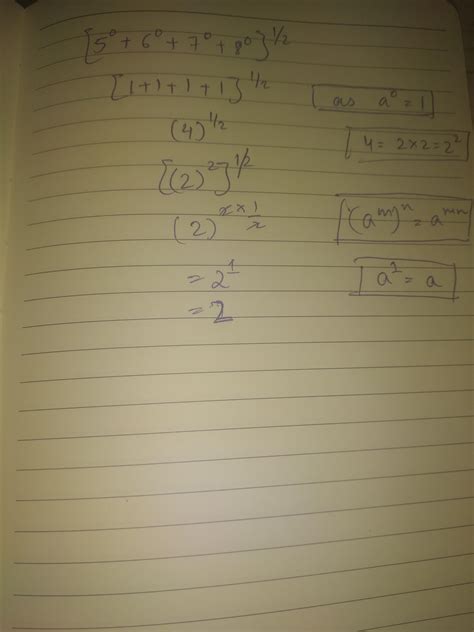 [5⁰ + 6⁰ + 7⁰ + 8⁰]^1/2
[1 + 1 + 1 + 1]^1/2 [as a⁰ = 1]
(4)^1/2 [4 = 2 × 2 = 2²]
[(2)²]^1/2
(2)^2 × 1/2 [(a^m)^n = a^mn]
= 2¹ [a¹ = a]
= 2